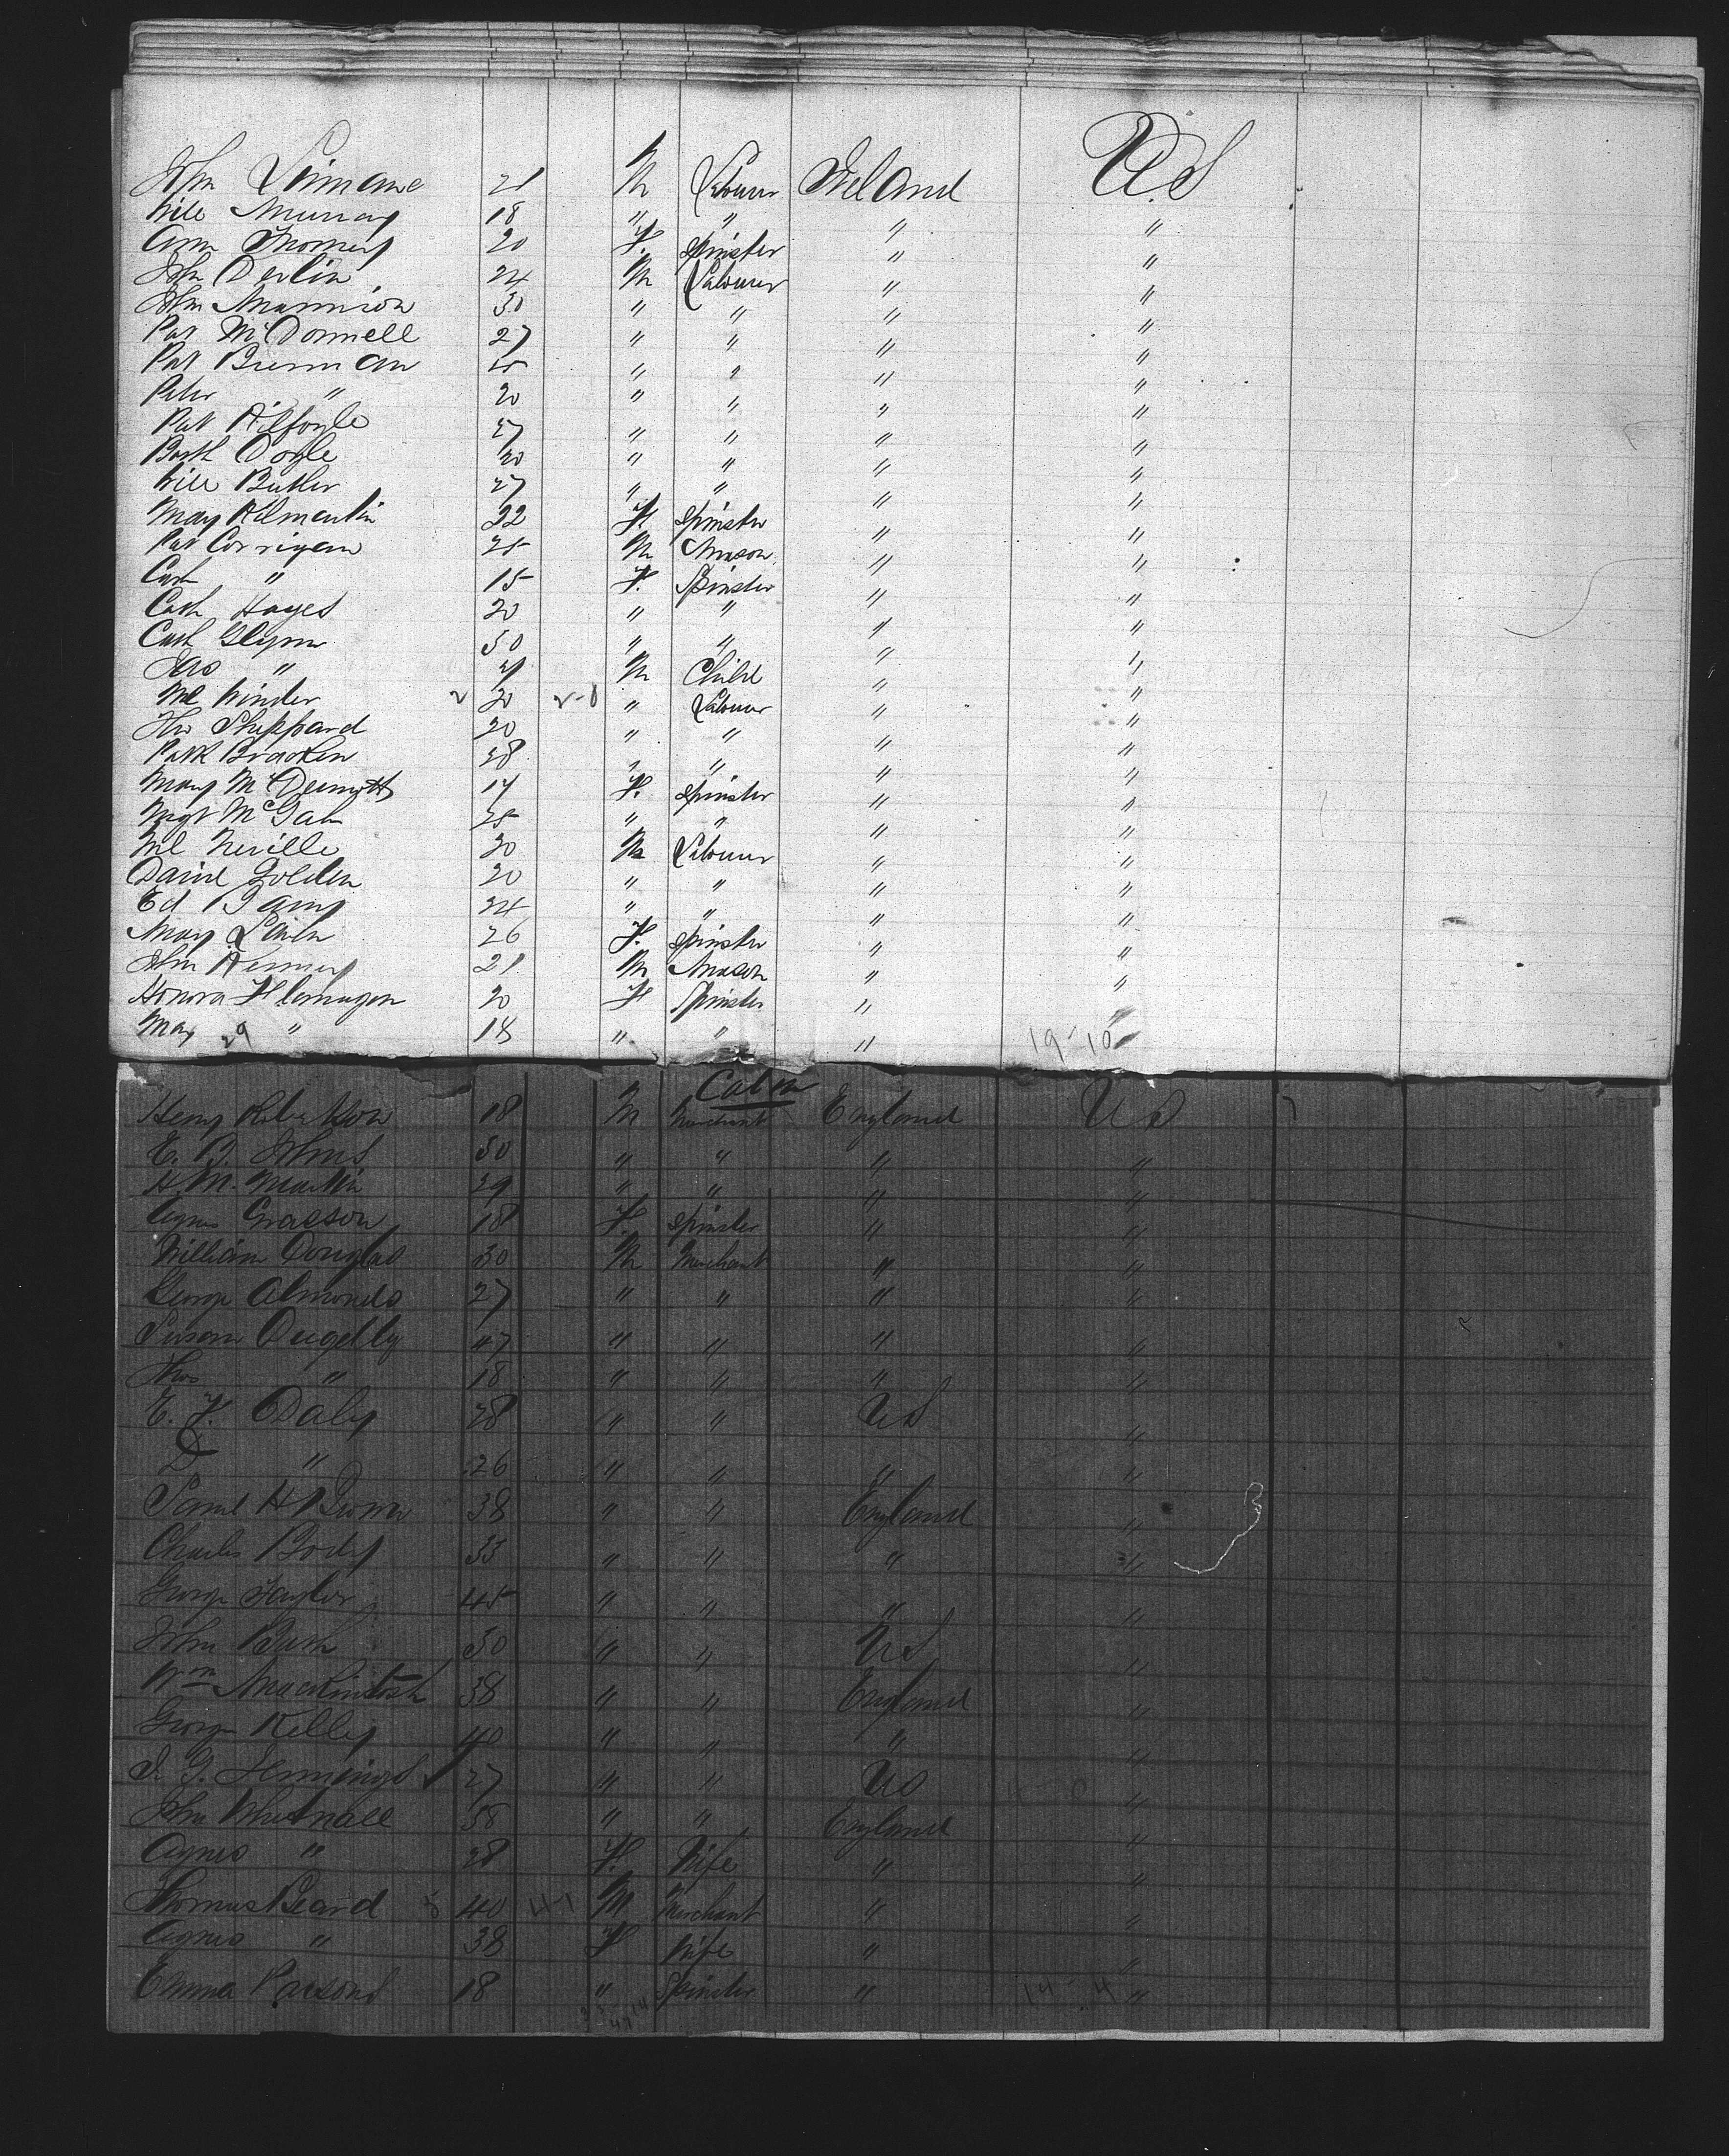 John 21 M Labourer Ireland U.S
Will Murray 18 " " " "
Ann Thomey 20 F. Spinster " "
John Devlin 24 M Labourer " "
John Mannion 30 " " " "
Pat McDonnell 27 " " " "
Pat Brennan 25 " " " "
Peter " 20 " " " "
Pat Kilfoyle 27 " " " "
Barth Doyle 20 " " " "
Will Butler 27 " " " "
Mary Kilmartin 22 F. Spinster " "
Pat Corrigan 25 M Mason " "
Cath " 15 F. Spinster " "
Cath Hayes 20 " " " "
Cath Glynn 50 " " " "
Jas " M Child " "
Ml Winder 20 " Labourer " "
Tho Sheppard 20 " " " "
Patk Bracken 28 " " " "
Mary McDermott 17 F. Spinster " "
Mgt McGah 25 " " " "
Ml Neville 20 M Labourer " "
Daniel Golden 20 " " " "
Ed 24 " " " "
Mary 26 F. Spinster " "
John Kenney 21 M Mason " "
Honora Flannagan 20 F Spinster " "
May " 18 " " " "
29 19-10
Cabin
Henry Robertson 18 M Merchant England US
E. B. Johns 50 " " " "
H M. Martin 29 " " " "
Agnes 18 F. Spinster " "
William Douglas 30 M Merchant " "
George Almonds 27 " " " "
Susan 47 " " " "
Thos " 18 " " " "
E. F. Daly 28 " " US "
D " 26 " " " "
Saml H Brown 38 " " England "
Charles Body 33 " " " "
George Taylor 45 " " " "
John Bush 50 " " US "
Wm Mackintosh 38 " " England "
George Kelly 40 " " " "
J. G. Jennings 27 " " US "
John Whitnall 38 " " England "
Agnes " 28 F. Wife " "
Thomas Beard 40 M Merchant " "
Agnes " 38 F Wife " "
Emma Parsons 18 " Spinster " "
14-4